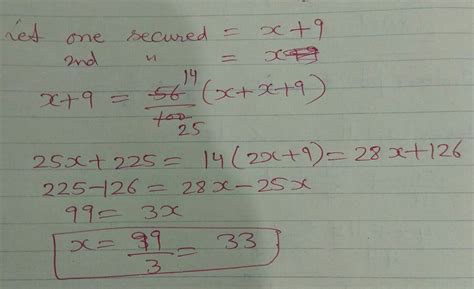 let one secured = x+9
2nd " = x
x+9 = 56 14/100 25 (x+x+9)
25x+225 = 14(2x+9) = 28x+126
225-126 = 28x-25x
99 = 3x
x = 99/3 = 33